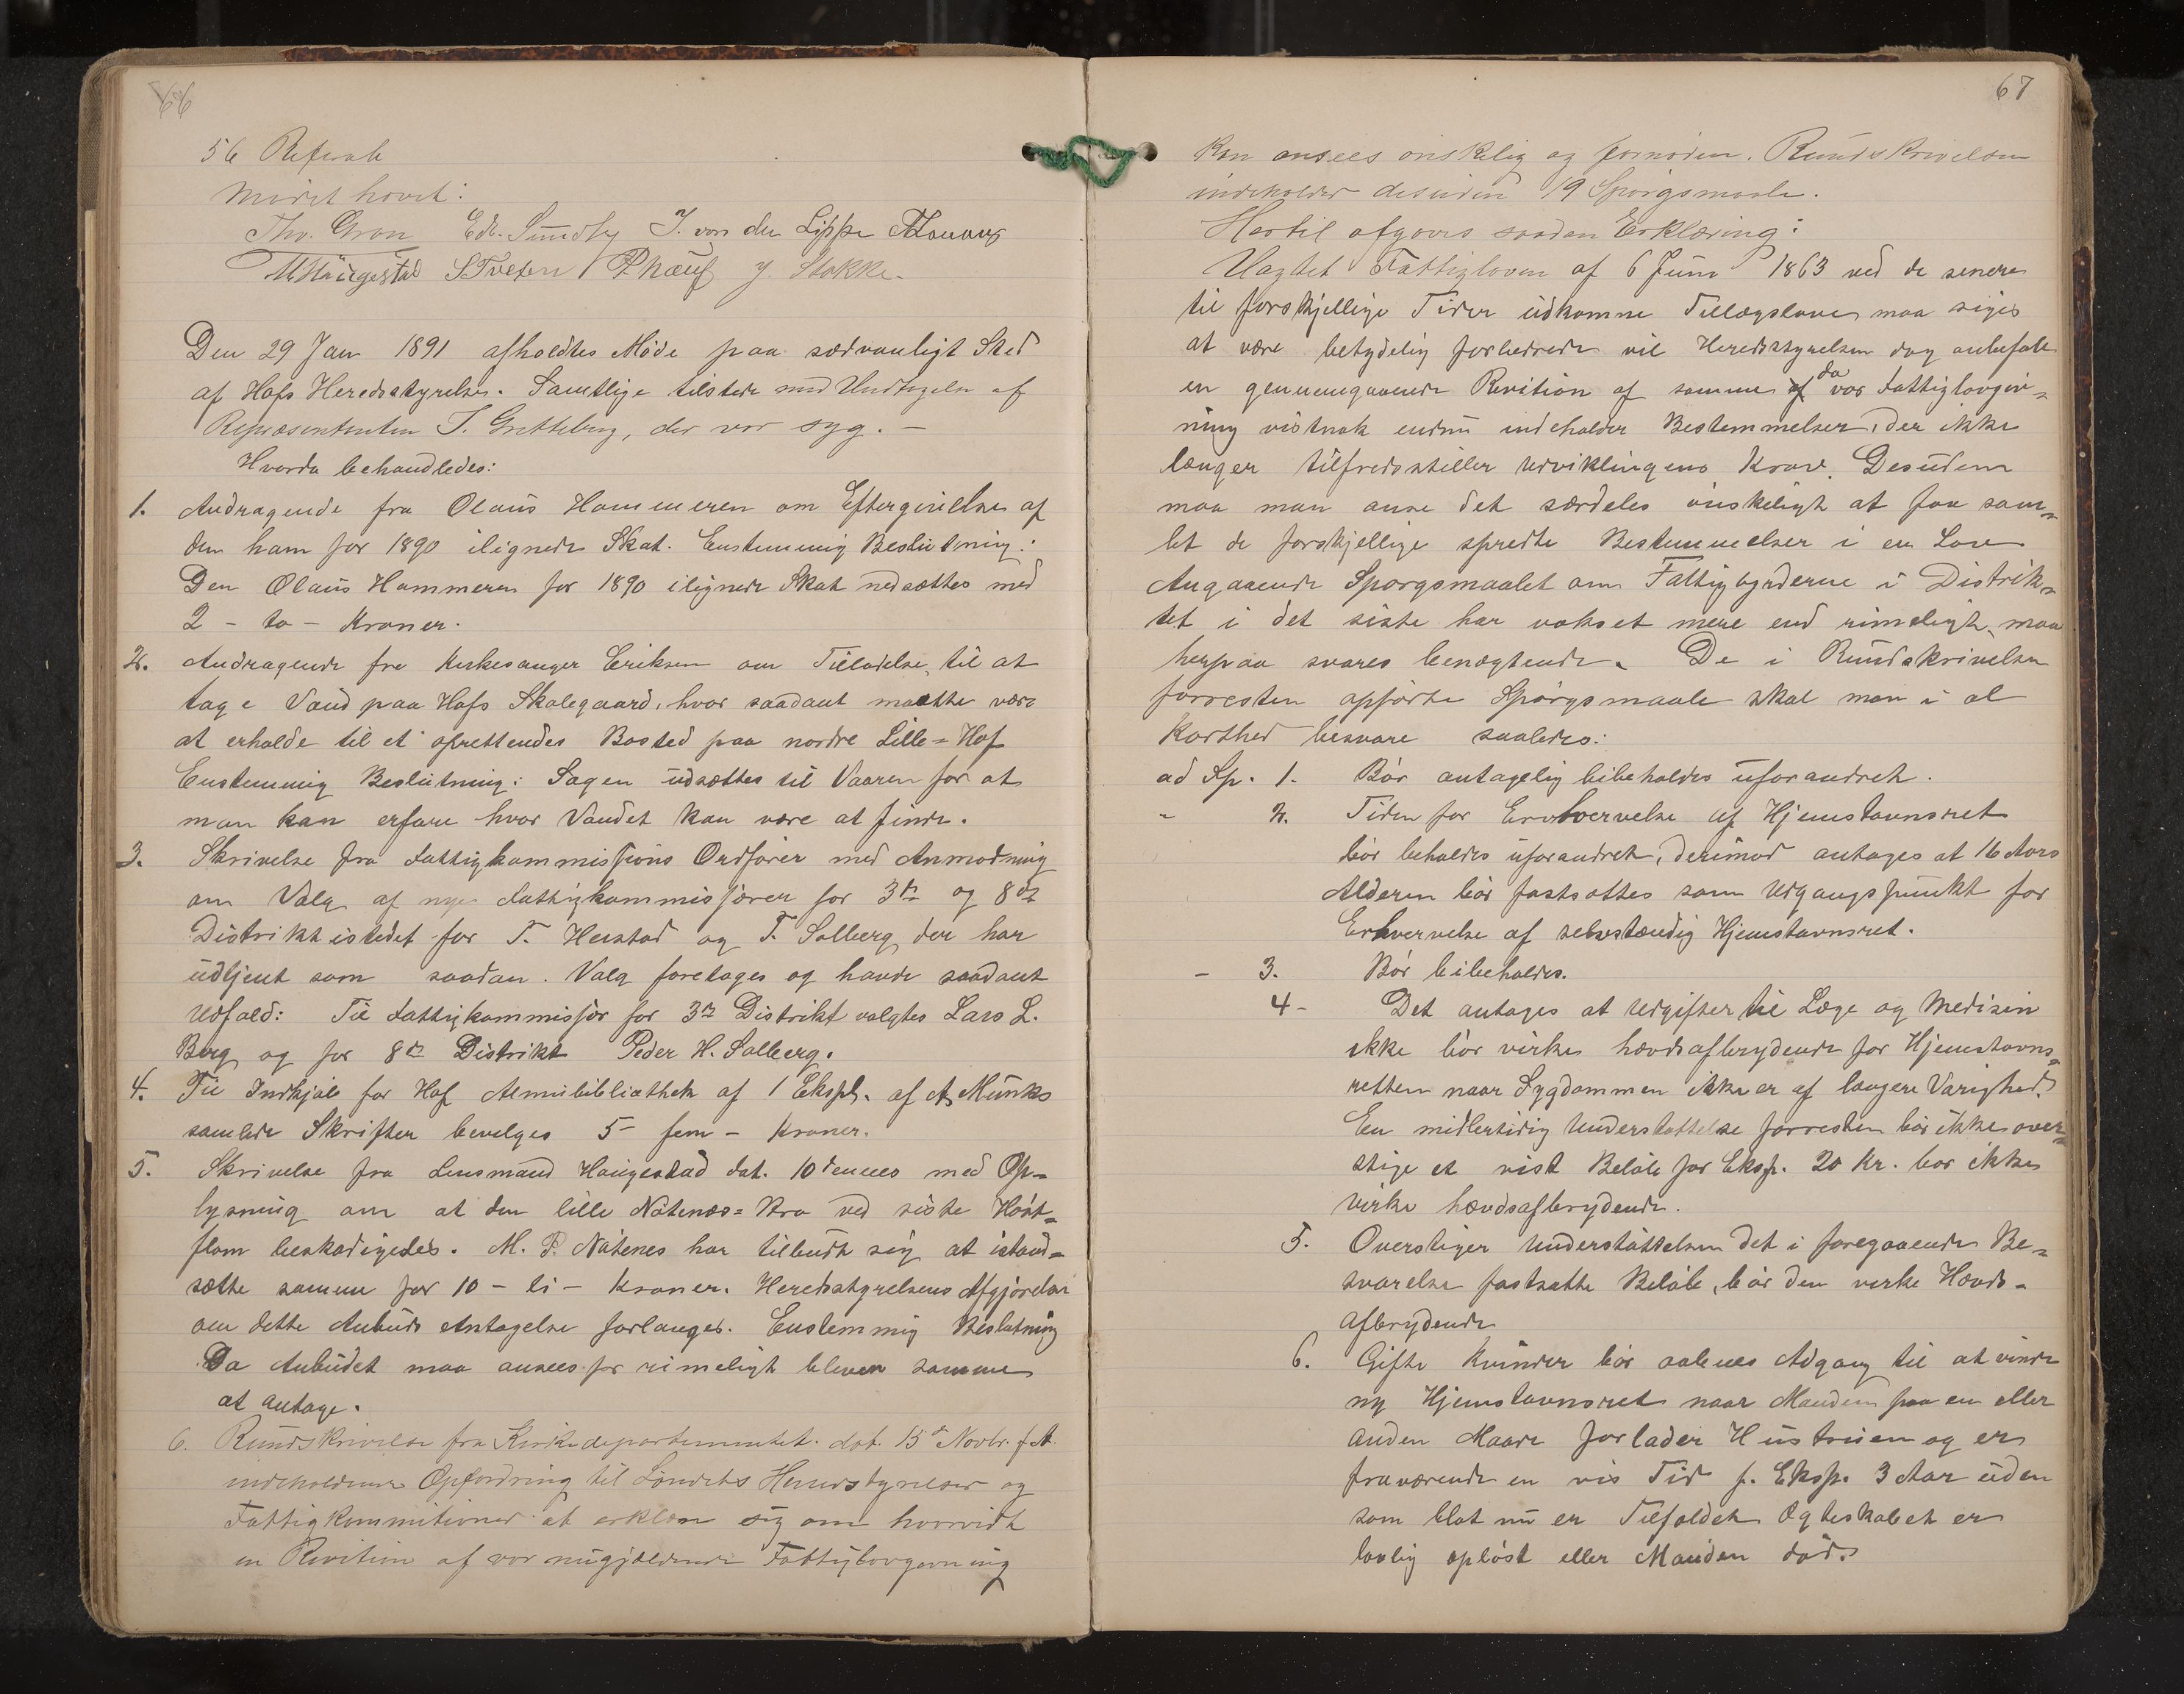 66
56 Referat
Mødet hævet:
Thv. Gran Edv. Sundby J. von der Lippe
M Haugestad S Tveten P. Kauf J. Stokke.
Den 29 Jan 1891 afholdtes Møde paa sædvanligt Sted
af Hofs Heredsstyrelse. Samtlige tilstede med Undtagelse af
Repræsentanten T. Gretteberg, der var syg. –
Hvorda behandledes:
1. Andragende fra Olaus Hammeren om Eftergivelse af
den ham for 1890 ilignede Skat. Enstemmig Beslutning:
Den Olaus Hammeren for 1890 ilignede Skat nedsættes med
2 – to – Kroner.
2. Andragende fra Kirkesanger Eriksen om Tilladelse til at
tage Vand paa Hofs Skolegaard, hvor saadant maatte være
at erholde til et oprettendes Bosted paa nordre Lille-Hof
Enstemmig Beslutning: Sagen udsættes til Vaaren for at
man kan erfare hvor Vandet kan være at finde.
3. Skrivelse fra Fattigkommissions Ordfører med Anmodning
om Valg af nye Fattigkommissjærer for 3de og 8de
Distrikt istedet for T. Herstad og T. Solberg, der har
udtjent som saadan. Valg foretages og havde saadant
Udfald: Til Fattigkommissjær for 3de Distrikt valgtes Lars L.
Berg og for 8de Distrikt Peder H. Solberg.
4. Til Indkjøb for Hof Almubibliothek af 1 Ekspl. af A. Munks
samlede Skrifter bevilges 5 – fem – Kroner.
5. Skrivelse fra Lensmand Haugestad dat. 10 dennes med Op-
lysning om at den lille Nøtenæs-Bro ved siste Høst-
flom beskadigedes. M. P. Nøtenes har tilbudt sig at istand-
sætte samme for 10 – ti – Kroner. Heredsstyrelsens Afgjørelse
om dette Anbuds Antagelse forlanges. Enstemmig Beslutning
Da Anbudet maa ansees for rimeligt blever samme
at antage.
6. Rundskrivelse fra Kirkedepartementet dat. 15de Novbr. f. A.
indeholdende Opfordring til Landets Heredsstyrelser og
Fattigkommitioner at erklære sig om hvorvidt
en Revition af vor nugjældende Fattiglovgivning
67
kan ansees ønskelig og fornøden. Rundskrivelsen
indeholder desuden 19 Spørgsmaale.
Hertil afgaves saadan Erklæring:
Uagtet Fattigloven af 6 Juni 1863 ved de senere
til forskjellige Tider udkomne Tillægslove maa siges
at være betydelig forbedrede vil Heredsstyrelsen dog anbefale
en gennemgaaende Revition af samme da vor Fattiglovgiv-
ning vistnok endnu indeholder Bestemmelser, der ikke
længer tilfredsstiller Udviklingens Krav. Desuden
maa man anse det særdeles ønskeligt at faa sam-
let de forskjellige spredte Bestemmelser i en Lov
Angaaende Spørgsmaalet om Fattigbyrderne i Distrik-
tet i det siste har vokset mere end rimeligt, maa
herpaa svares benægtende. De i Rundskrivelsen
forresten opførte Spørgsmaale skal man i al
Korthed besvare saaledes:
ad Sp. 1. Bør antagelig bibeholdes uforandret.
- 2. Tiden for Erhvervelse af Hjemstavnsret
bør beholdes uforandret, derimod antages at 16 Aars
Alderen bør fastsættes som Udgangspunkt for
Erhvervelse af selvstændig Hjemstavnsret.
- 3. Bør bibeholdes.
4 - Det antages at Udgifter til Læge og Medisin
ikke bør virke hævdsafbrydende for Hjemstavns-
retten naar Sygdommen ikke er af længere Varighed.
En midlertidig Understøttelse forresten bør ikke over-
stige et vist Beløb for Eksp. 20 Kr. bør ikke
virke hævdsafbrydende.
5. Overstiger Understøttelsen det i foregaaende Be-
svarelse fastsatte Beløb, bør den virke Hævds-
afbrydende
6. Gifte Kvinder bør aabnes Adgang til at vinde
ny Hjemstavnsret naar Manden paa en eller
anden Maade forlader Hustruen og er
fraværende en vis Tid f. Eksp. 3 Aar uden
som blot nu er Tilfældet Ægteskabet er
lovlig opløst eller Manden død.